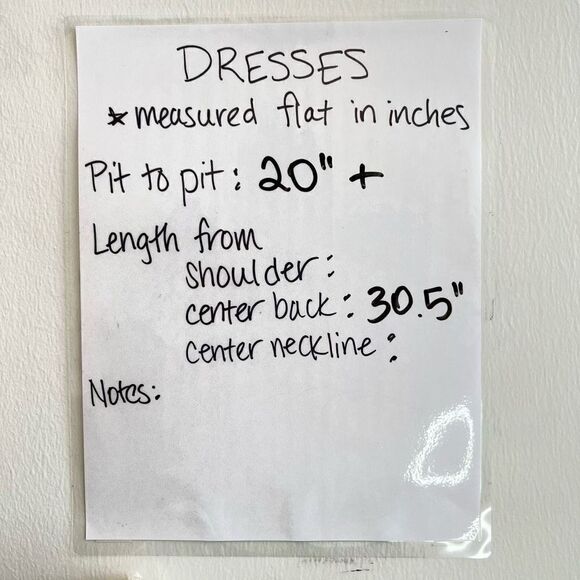 DRESSES
* measured flat in inches
Pit to pit: 20" +
Length from
shoulder:
center back: 30.5"
center neckline:
Notes: